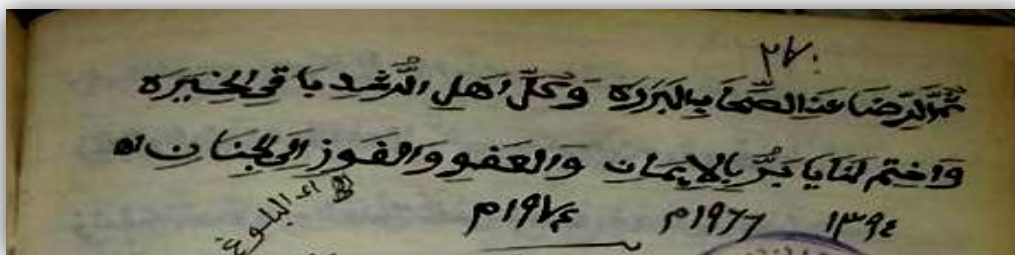 ٢٧٠
ثُمَّ الرِّضَا عَنِ الصِّحَابِ الْبَرَرَةْ وَكُلِّ اهلِ الرُّشدِ بَاقِي الخِيَرَةْ
وَاختم لنَا يَا بَرُّ بالايمان والعفو والفوز الى الجنان اه
١٣٩٤ ١٩٦٦م ١٩٧٤م